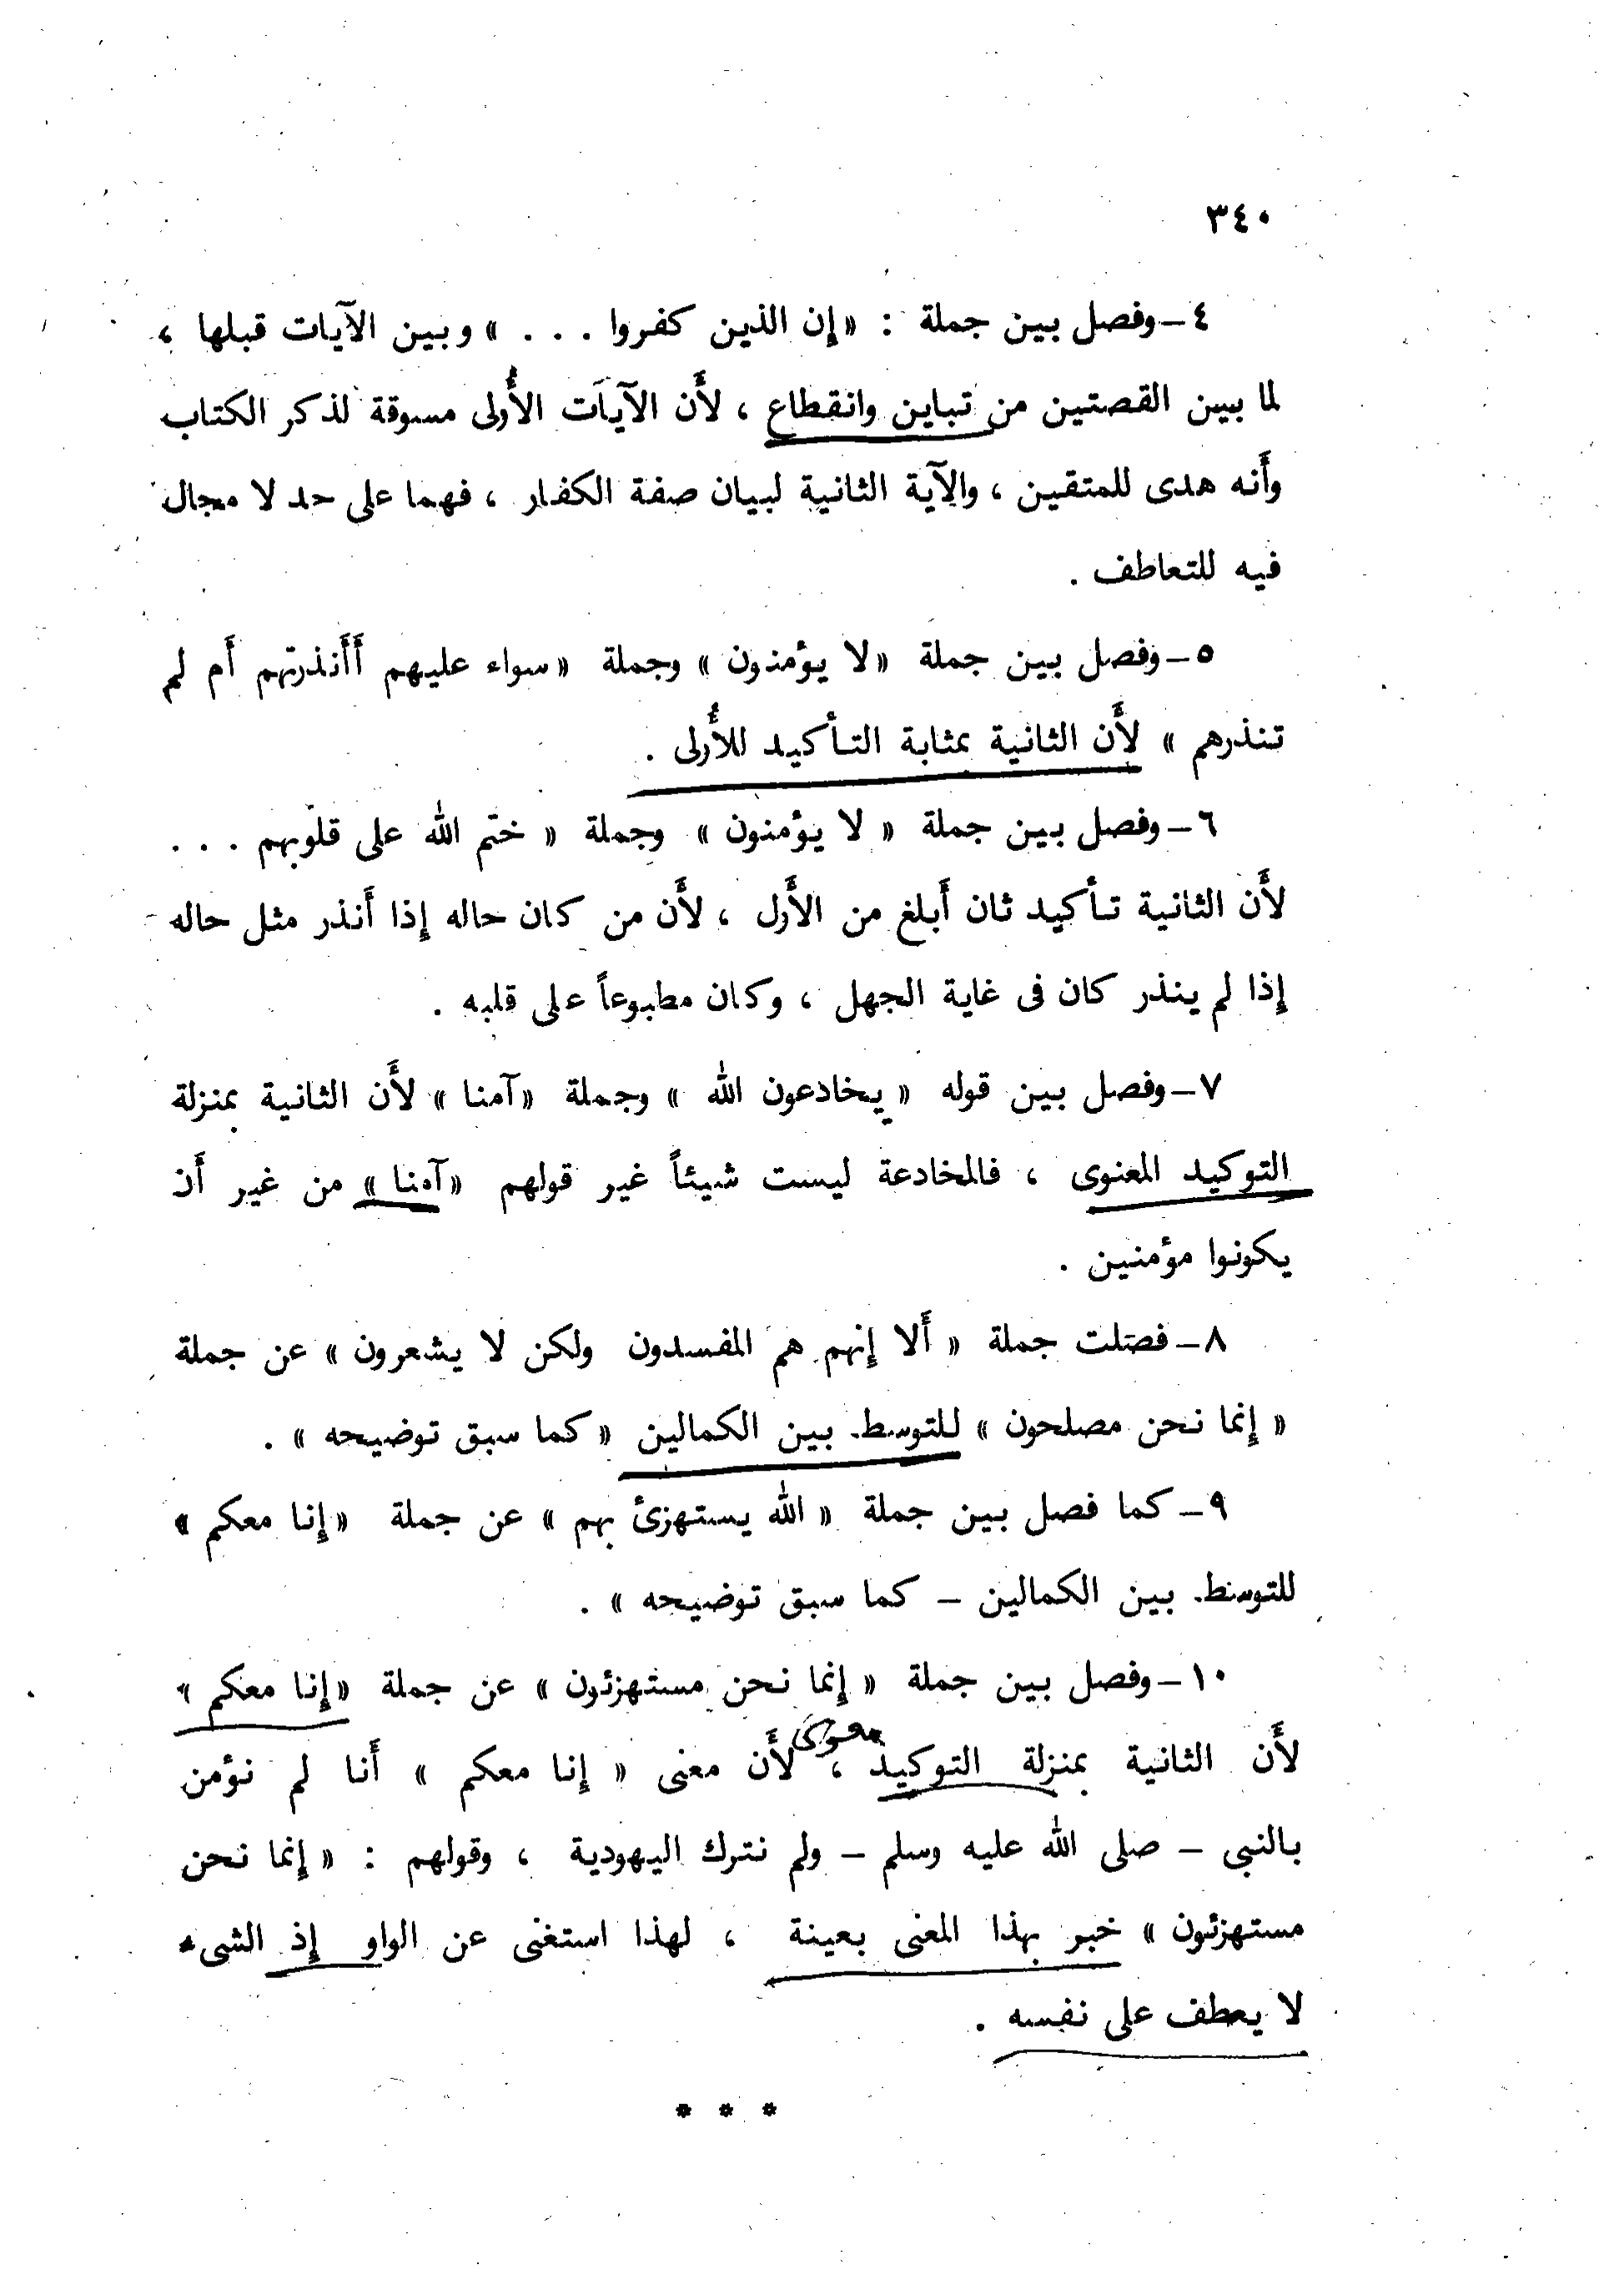 ٣٤٠
٤ – وفصل بين جملة : « إن الذين كفروا . . . » وبين الآيات قبلها ،
لما بين القصتين من تباين وانقطاع ، لأَن الآيات الأُولى مسوقة لذكر الكتاب
وأَنه هدى للمتقين ، والآية الثانية لبيان صفة الكفار ، فهما على حد لا مجال
فيه للتعاطف .
٥ – وفصل بين جملة « لا يؤمنون » وجملة « سواء عليهم أَأَنذرتهم أَم لم
تنذرهم » لأَن الثانية بمثابة التأكيد للأُولى .
٦ – وفصل بين جملة « لا يؤمنون » وجملة « ختم الله على قلوبهم . . .
لأَن الثانية تأكيد ثان أَبلغ من الأَول ، لأَن من كان حاله إذا أَنذر مثل حاله
إذا لم ينذر كان فى غاية الجهل ، وكان مطبوعاً على قلبه .
٧ – وفصل بين قوله « يخادعون الله » وجملة « آمنا » لأَن الثانية بمنزلة
التوكيد المعنوى ، فالمخادعة ليست شيئاً غير قولهم « آمنا » من غير أَن
يكونوا مؤمنين .
٨ – فصلت جملة « أَلا إنهم هم المفسدون ولكن لا يشعرون » عن جملة
« إنما نحن مصلحون » للتوسط بين الكمالين « كما سبق توضيحه » .
٩ – كما فصل بين جملة « الله يستهزئ بهم » عن جملة « إنا معكم »
للتوسط بين الكمالين – كما سبق توضيحه » .
١٠ – وفصل بين جملة « إنما نحن مستهزئون » عن جملة « إنا معكم »
معنوى
لأَن الثانية بمنزلة التوكيد ، لأَن معنى « إنا معكم » أَنا لم نؤمن
بالنبى – صلى الله عليه وسلم – ولم نترك اليهودية ، وقولهم : « إنما نحن
مستهزئون » خبر بهذا المعنى بعينة ، لهذا استغنى عن الواو إذ الشىء
لا يعطف على نفسه .
* * *